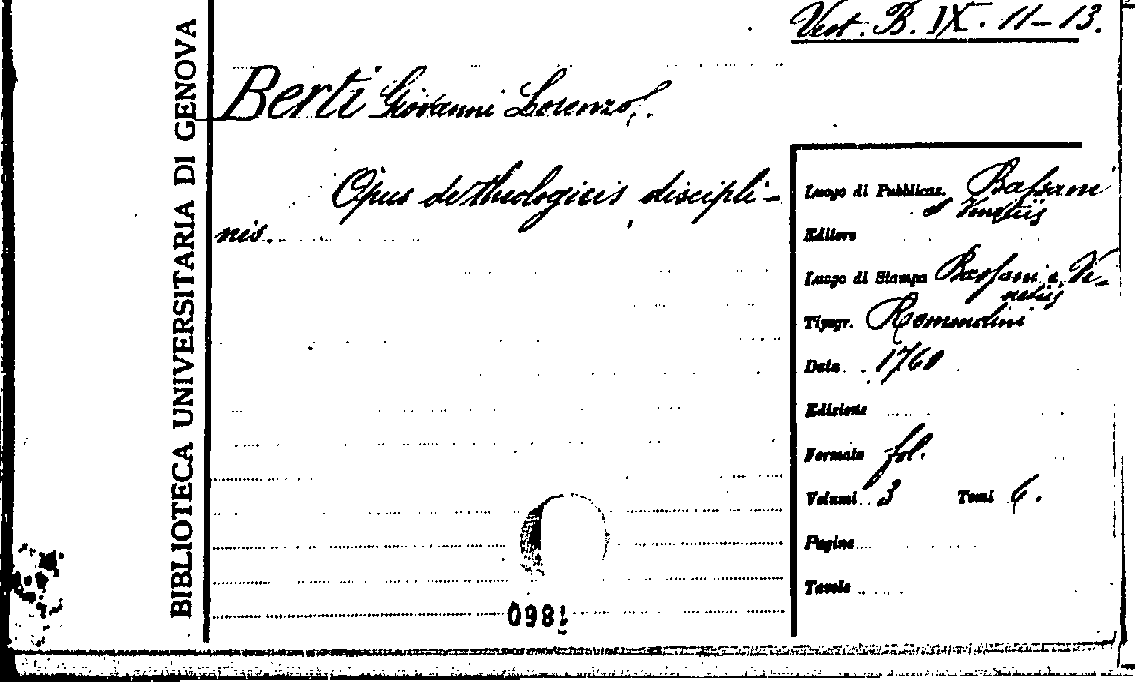 Vest. B. IX. 11-13.
BIBLIOTECA UNIVERSITARIA DI GENOVA
Berti Giovanni Lorenzo.
Opus de theologicis discipli-
nis.
Luogo di Pubblicaz. Bassani
et Venetiis
Editore
Luogo di Stampa Bassani e Ve-
netiis
Tipogr. Remondini
Data 1760
Edizione
Formato fol.
Volumi 3 Tomi 6.
Pagine
Tavole
1860